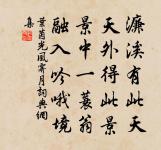 濂溪有此天
天外得此景
景中一蓑翁
融入吟哦境
葉茵光風霽月詞典網
集